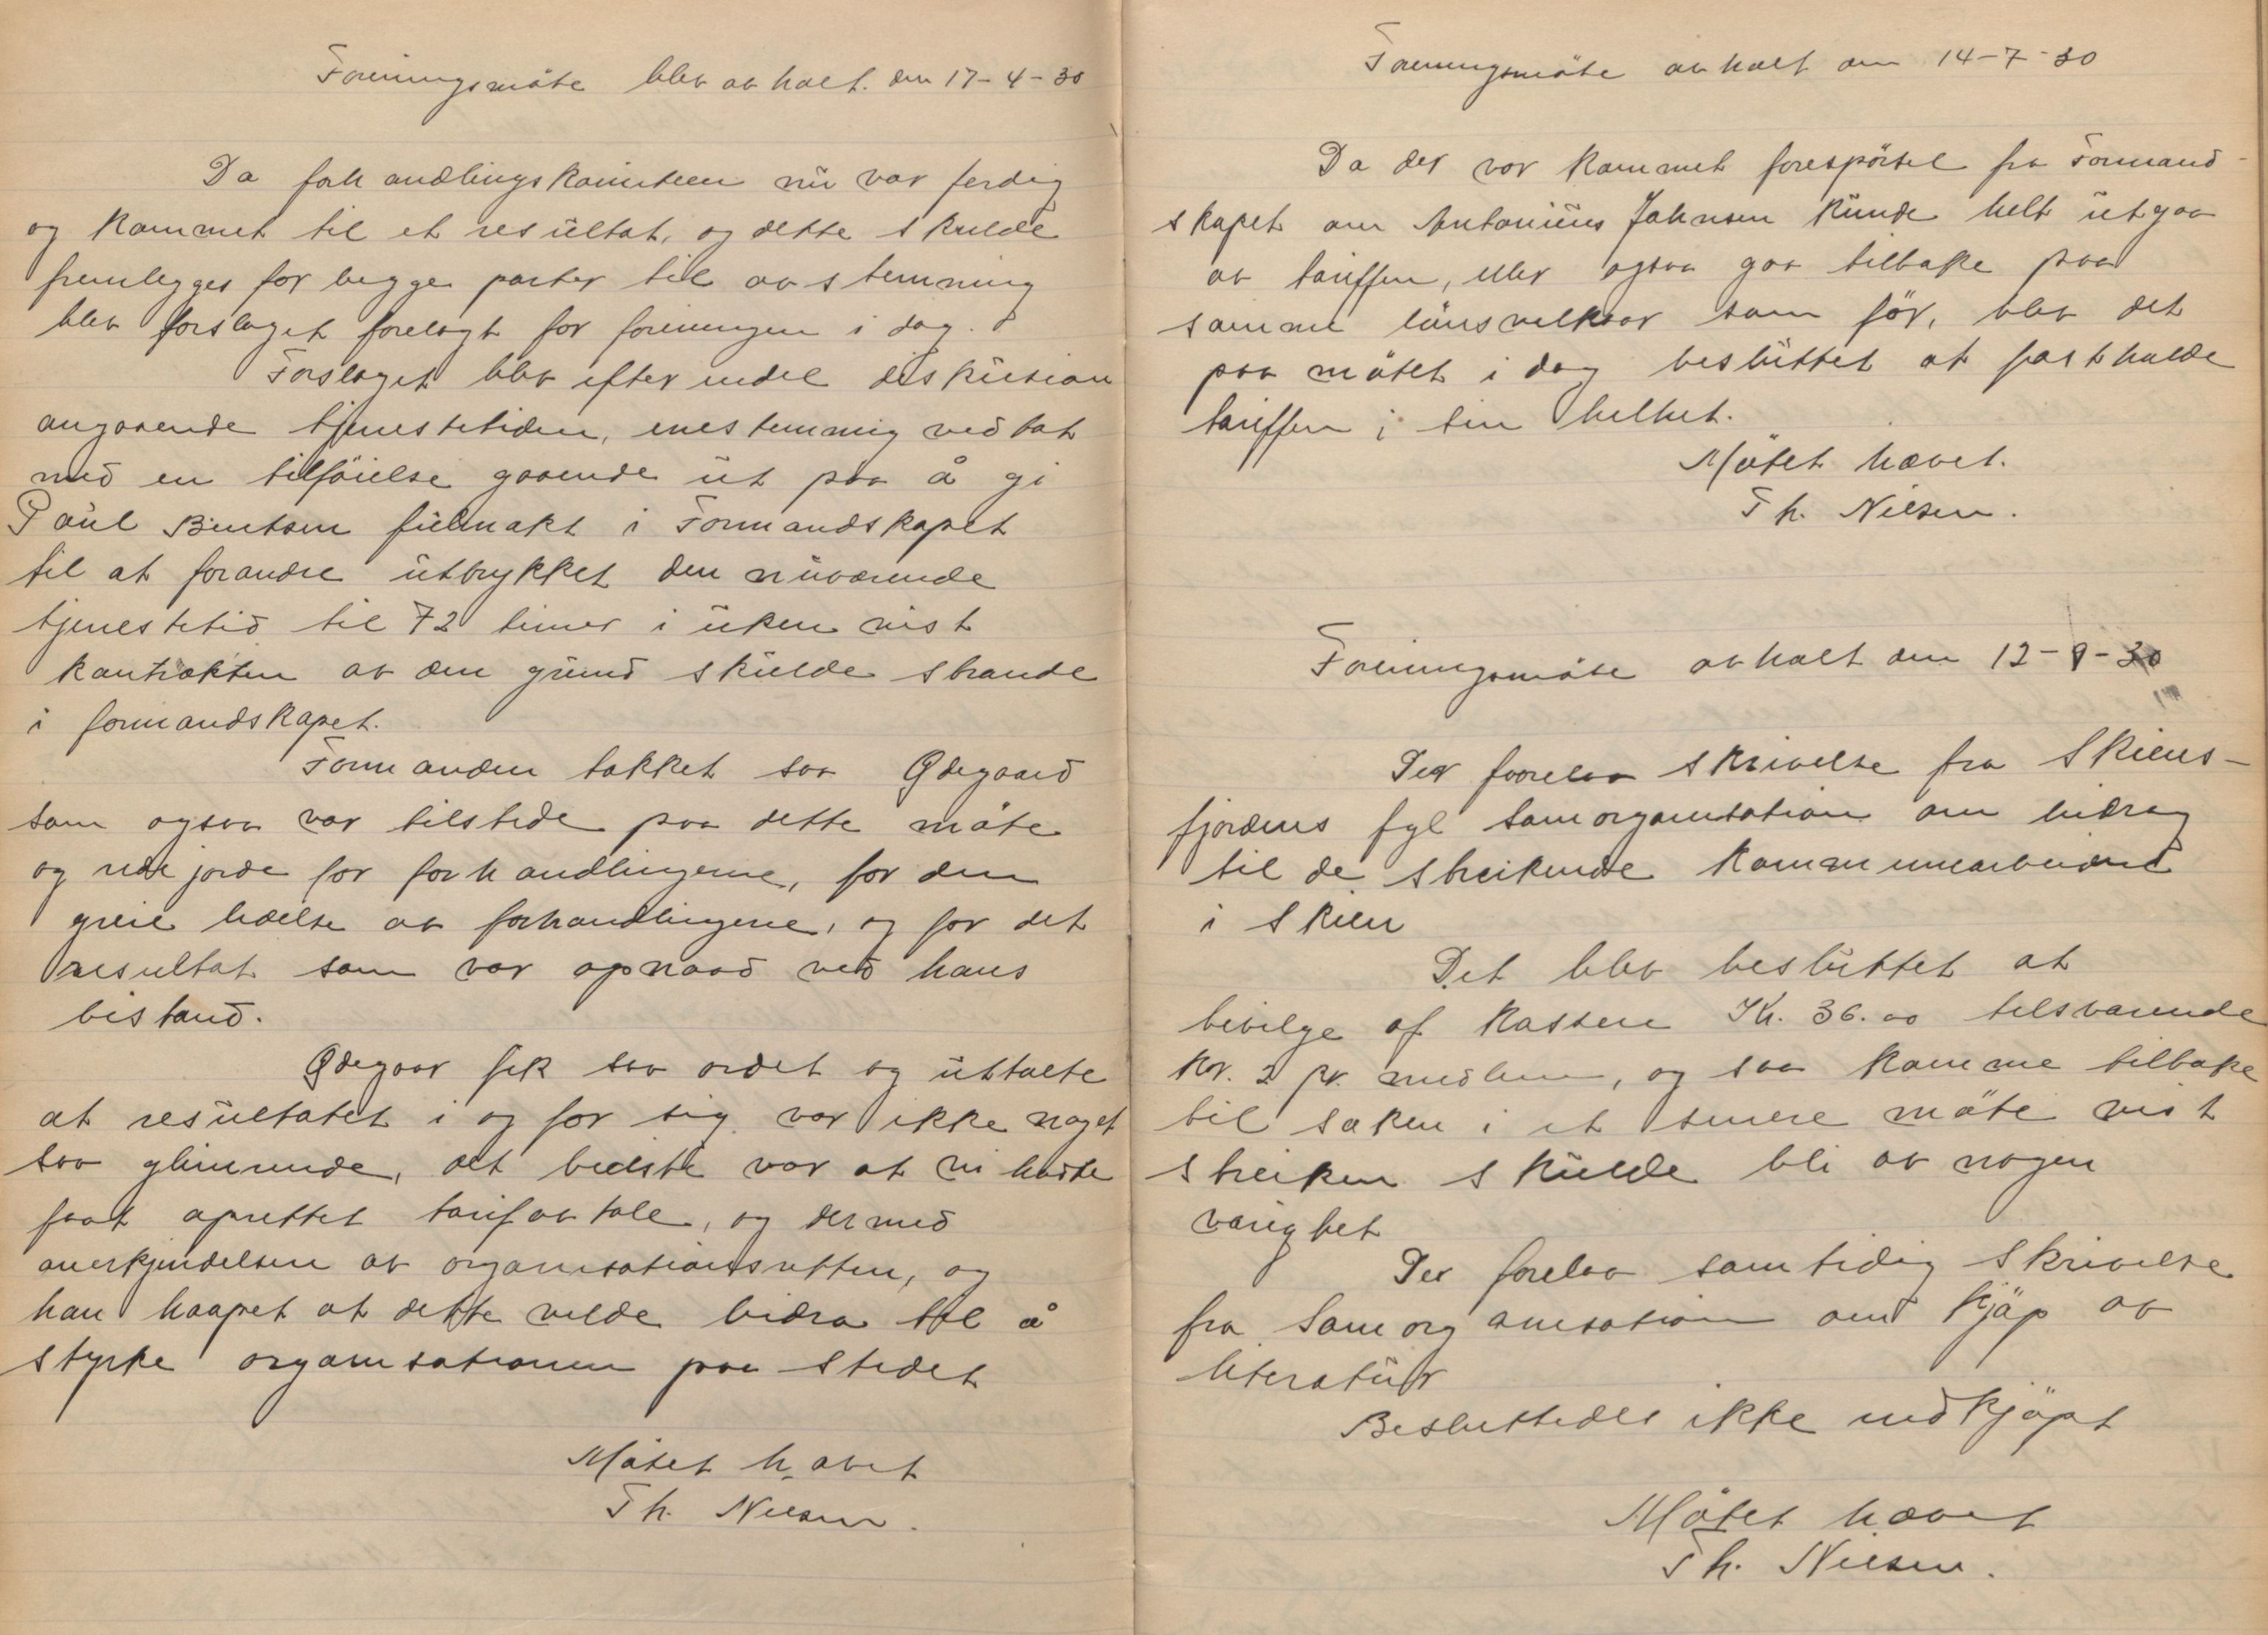 Foreningsmöte blev avholt. den 17-4-30
Da forhandlingskomiteen nu var ferdig
og kommet til et resultat, og dette skulde
fremlegges for begge parter til avstemning
blev forslaget forelagt for foreningen i dag.
Forslaget blev efter endel diskusion
angaaende tjenestetiden, enestemmig vedtat
med en tilföielse gaaende ut paa å gi
Paul Bentsen fulmakt i Formandskapet
til at forandre uttrykket den nuværende
tjenestetid til 72 timer i uken vist
kontrakten av den grund skulde strande
i formandskapet.
Formanden takket saa Ødegaard
som ogsaa var tilstede paa dette möte
og redejorde for forhandlingerne, for den
greie ledelse av forhandlingene, og for det
resultat som var opnaad ved hans
bistand.
Ødegaar fik saa ordet og uttalte
at resultatet i og for sig var ikke noget
saa glimrende, det bedste var at vi hadde
faat oprettet tarifavtale, og dermed
anerkjendelsen av organisationsretten, og
han haapet at dette vilde bidra til å
styrke organisationen paa stedet
Mötet hævet
Th. Nilsen.
Foreningsmöte avholt den 14-7-30
Da der var kommet forespörsel fra Formand-
skapet om Antonius Johnsen kunde helt utgaa
av tariffen, eller ogsaa gaa tilbake paa
samme lönsvilkaar som för, blev det
paa mötet i dag besluttet at fastholde
tariffen i sin helhet.
Mötet hævet.
Th. Nilsen.
Foreningsmöte avholt den 12-9-30
Der forelaa skrivelse fra Skiens-
fjordens fgl samorganisation om bidrag
til de streikende kommunearbeidere
i Skien
Det blev besluttet at
bevilge af kassen Kr. 36.00 tilsvarende
kr. 2 pr. medlem, og saa komme tilbake
til saken i et senere möte vist
streiken skulde bli av nogen
varighet
Der forelaa samtidig skrivelse
fra Samorganisation om kjöp av
literatur
Besluttedes ikke indkjöpt
Mötet hævet
Th. Nilsen.